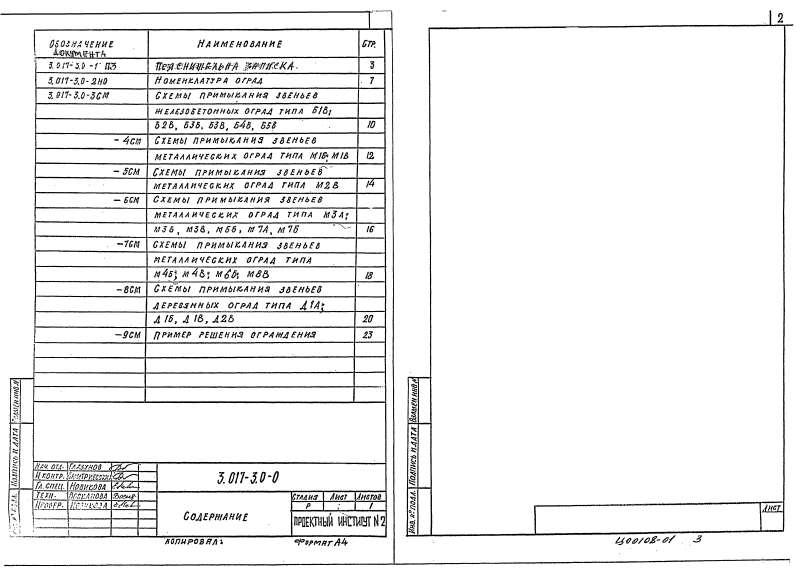 2
ОБОЗНАЧЕНИЕ ДОКУМЕНТА НАИМЕНОВАНИЕ СТР.
3.017-3.0-1 ПЗ ПОЯСНИТЕЛЬНА ЗАПИСКА. 3
3.017-3.0-2НО НОМЕНКЛАТУРА ОГРАД 7
3.017-3.0-3СМ СХЕМЫ ПРИМЫКАНИЯ ЗВЕНЬЕВ
ЖЕЛЕЗОБЕТОННЫХ ОГРАД ТИПА Б1В;
Б2В, Б3Б, Б3В, Б4В, Б5В 10
-4СМ СХЕМЫ ПРИМЫКАНИЯ ЗВЕНЬЕВ
МЕТАЛЛИЧЕСКИХ ОГРАД ТИПА М1Б, М1В 12
-5СМ СХЕМЫ ПРИМЫКАНИЯ ЗВЕНЬЕВ
МЕТАЛЛИЧЕСКИХ ОГРАД ТИПА М2В 14
-6СМ СХЕМЫ ПРИМЫКАНИЯ ЗВЕНЬЕВ
МЕТАЛЛИЧЕСКИХ ОГРАД ТИПА М3А;
М3Б, М3В, М5Б, М7А, М7Б 16
-7СМ СХЕМЫ ПРИМЫКАНИЯ ЗВЕНЬЕВ
МЕТАЛЛИЧЕСКИХ ОГРАД ТИПА
М4Б; М4В; М6Б; М8В 18
-8СМ СХЕМЫ ПРИМЫКАНИЯ ЗВЕНЬЕВ
ДЕРЕВЯННЫХ ОГРАД ТИПА Д1А;
Д1Б, Д1В, Д2В 20
-9СМ ПРИМЕР РЕШЕНИЯ ОГРАЖДЕНИЯ 23
НАЧ. ОТД. ГЛАЗУНОВ
Н.КОНТР. ДМИТРИЕВСКИЙ
ГЛ. СПЕЦ. НОВИКОВА
ТЕХН. ПЕСКАНОВА
ПРОВЕР. НОВИКОВА
3.017-3.0-0
СОДЕРЖАНИЕ
СТАДИЯ ЛИСТ ЛИСТОВ
Р 1
ПРОЕКТНЫЙ ИНСТИТУТ N2
КОПИРОВАЛ: ФОРМАТ А4
ИНВ. № ПОДЛ. ПОДПИСЬ И ДАТА ВЗАМЕН ИНВ.№
ИНВ. № ПОДЛ. ПОДПИСЬ И ДАТА ВЗАМЕН ИНВ.№
ЛИСТ
Ц00108-01 3